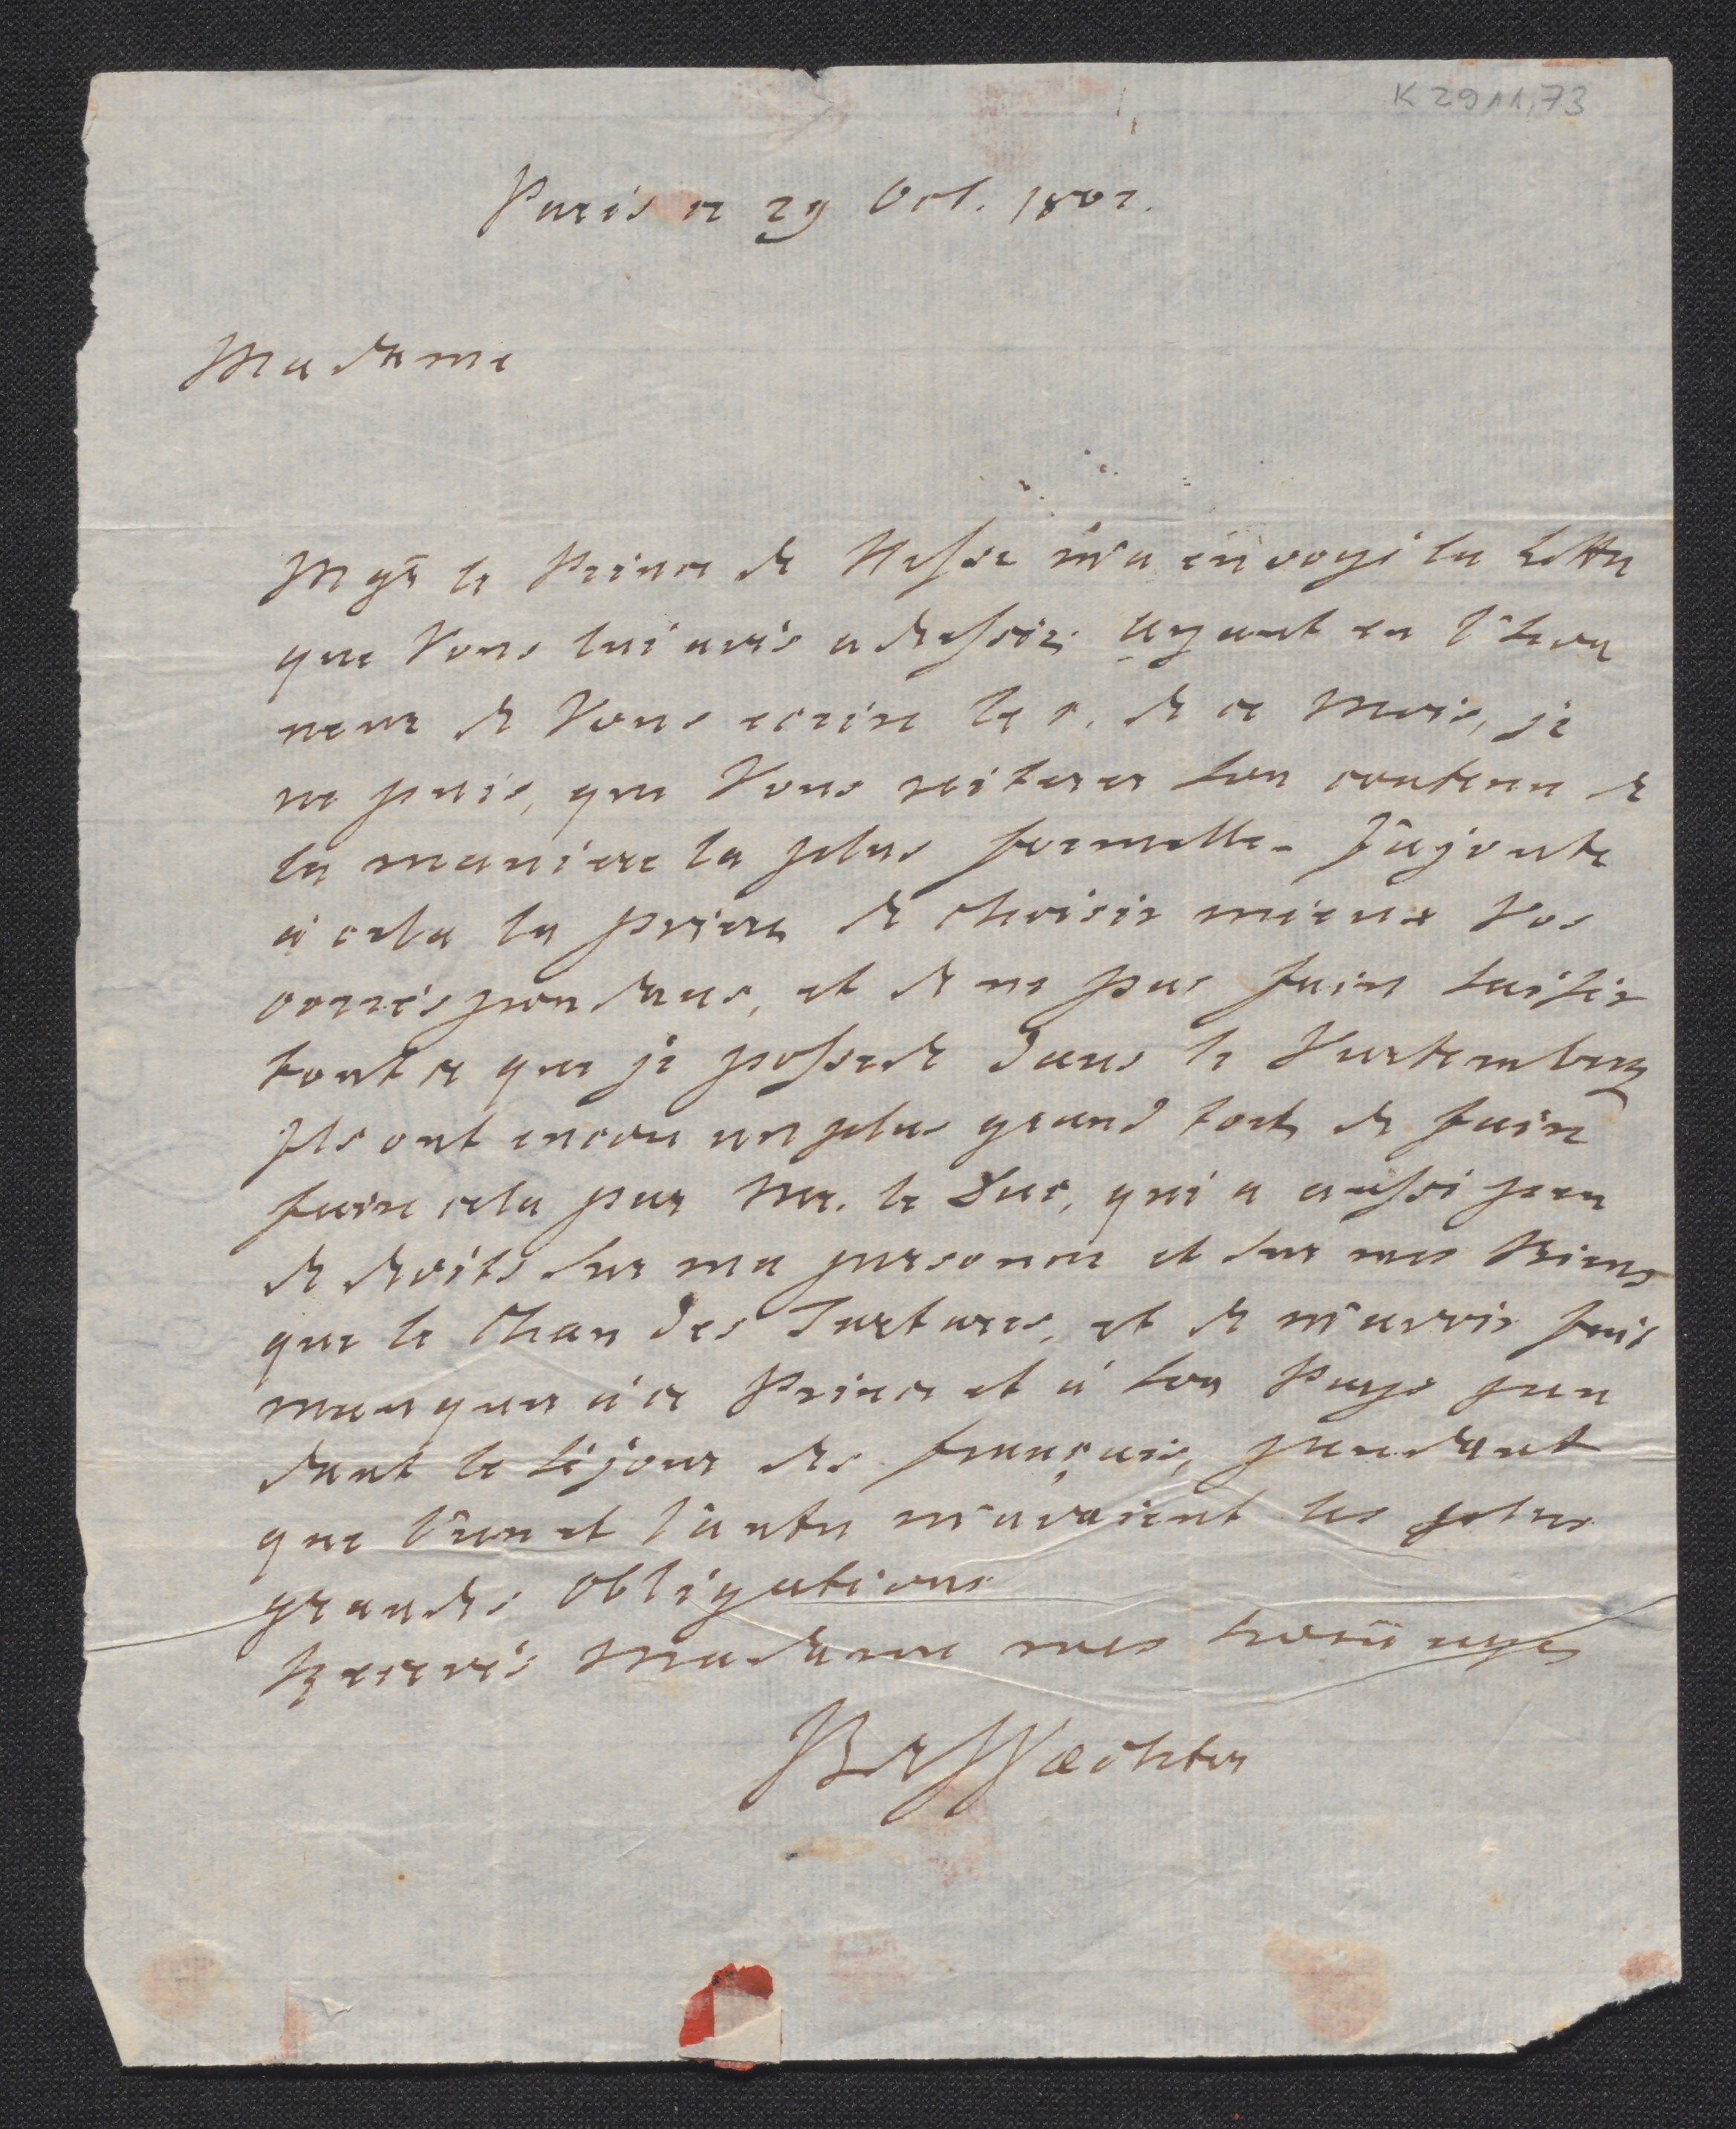 K 2911,73
Paris ce 29 Oct. 1802.
Madame
Mgr le Prince de Hesse m'a envoyé la Lettre
que Vous lui avés adressée. ayant eu l'hon
neur de Vous ecrire le de ce Mois, je
ne puis, que Vous reiterer son contenu de
la maniere la plus formelle. J'ajoute
à cela la priere de choisir mieux Vos
correspondens, et de ne pas faire saisir
tout ce que je possede dans le Vurtemberg
Ils ont encore un plus grand tort de faire
faire cela par Mr. le Duc, qui a aussi peu
de droits sur ma personne et sur mes Biens
que le Chan des Tartares, et de m'avoir fait
manquer à ce Prince et à son Pays pen
dant le séjour des français, pendant
que l'un et l'autre m'avaient les plus
grandes obligations
Recevés Madame mes homages
B de Wæchter